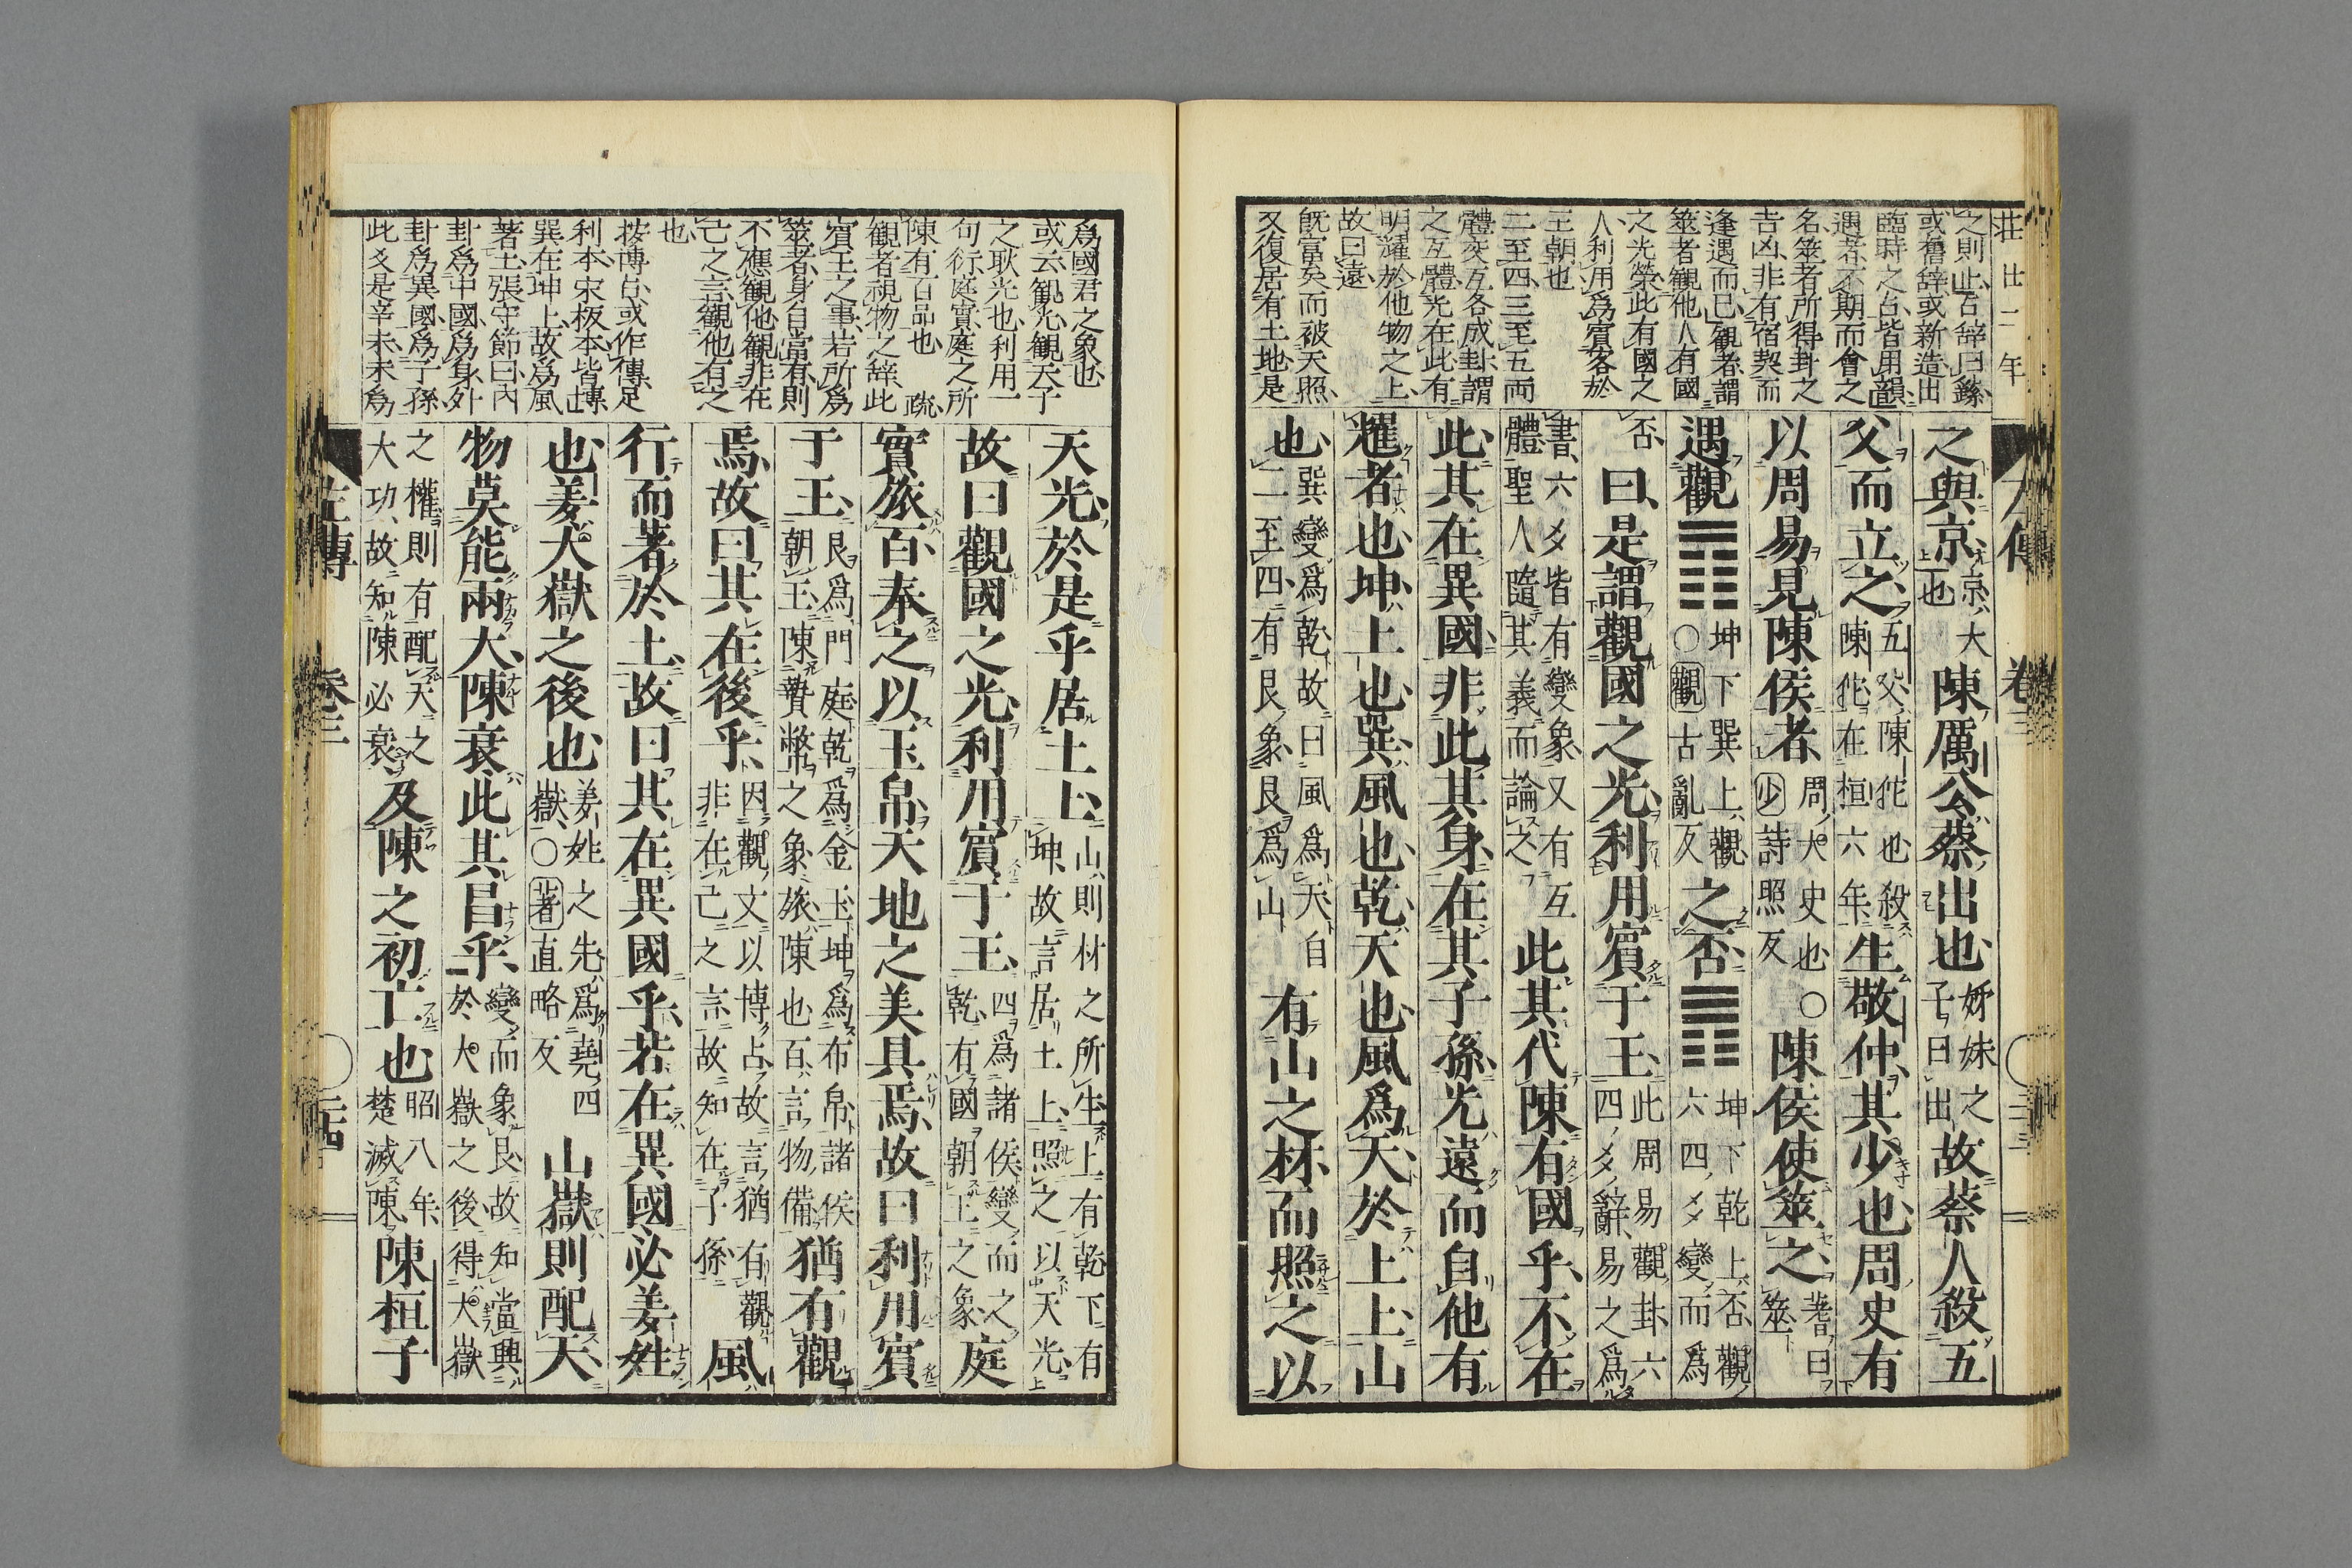 荘廿二年
之則此占辭曰鏘
或舊辭或新造出
臨時之占皆用韻
遇者不期而會之
名筮者所得卦之
吉凶非有宿契而
逢遇而已觀者謂
筮者觀他人有國
之光榮此有國之
人利用爲賓客於
王朝也
二至四三至五兩
體交互各成卦謂
之互體光在此有
明耀於他物之上
故曰遠
既富矣而被天照
又復居有土地是
左傳 卷三 二十三
之與京京大也陳厲公蔡出也姊妹之子曰出故蔡人殺五
父而立之五父陳佗也殺陳佗在桓六年生敬仲其少也周史有
以周易見陳侯者周大史也○少詩照反陳侯使筮之蓍曰筮
遇觀䷓坤下巽上觀○觀古亂反之否䷋坤下乾上否觀六四爻變而爲
否曰是謂觀國之光利用賓于王此周易觀卦六四爻辭易之爲
書六爻皆有變象又有互體聖人隨其義而論之此其代陳有國乎不在
此其在異國非此其身在其子孫光遠而自他有
耀者也坤土也巽風也乾天也風爲天於土上山
也巽變爲乾故曰風爲天自二至四有艮象艮爲山有山之材而照之以
爲國君之象也
或云觀光觀天子
之耿光也利用一
句衍庭實庭之所
陳有百品也 疏
觀者視物之辭此
賓王之事若所爲
筮者身自當有則
不應觀他觀非在
己之言觀他有之
也
按博占或作傳足
利本宋板本皆博
巽在坤上故爲風
著土張守節曰內
卦爲中國爲身外
卦爲異國爲子孫
此爻是辛未未爲
天光於是乎居土上山則材之所生上有乾下有坤故言居土上照之以天光
故曰觀國之光利用賓于王四爲諸侯變而之乾有國朝王之象庭
實旅百奉之以玉帛天地之美具焉故曰利用賓
于王艮爲門庭乾爲金玉坤爲布帛諸侯朝王陳贄幣之象旅陳也百言物備猶有觀
焉故曰其在後乎因觀文以博占故言猶有觀非在己之言故知在子孫風
行而著於土故曰其在異國乎若在異國必姜姓
也姜大嶽之後也姜姓之先爲堯四嶽○著直略反山嶽則配天
物莫能兩大陳衰此其昌乎變而象艮故知當興於大嶽之後得大嶽
之權則有配天之大功故知陳必衰及陳之初亡也昭八年楚滅陳陳桓子
左傳 卷三 二十四